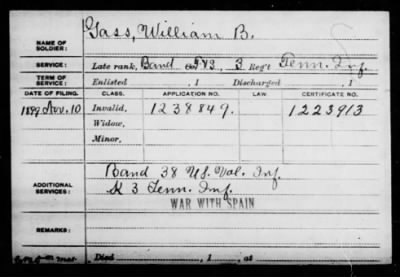 Gass, William B.
NAME OF SOLDIER:
SERVICE: Late rank, Band, 3 Reg't Tenn. Inf.
TERM OF SERVICE: Enlisted , 1 Discharged , 1
DATE OF FILING. CLASS. APPLICATION NO. LAW. CERTIFICATE NO.
1899 Nov. 10 Invalid, 1238849. 1223913
Widow,
Minor,
ADDITIONAL SERVICES: Band 38 U.S. Vol. Inf.
K 3 Tenn. Inf.
WAR WITH SPAIN
REMARKS:
Died , 1 , at